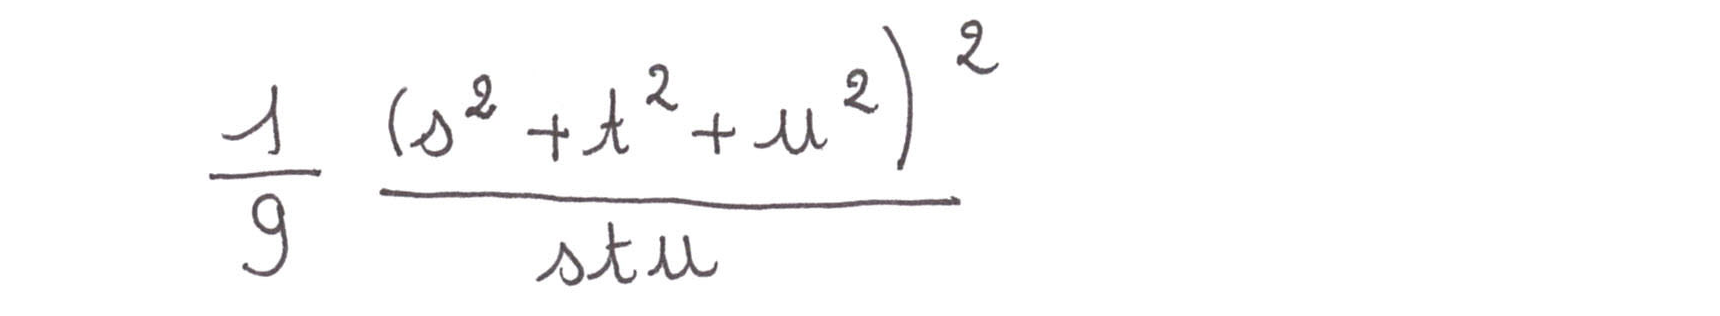 \frac{1}{9} \frac{(s^2+t^2+u^2)^2}{stu}